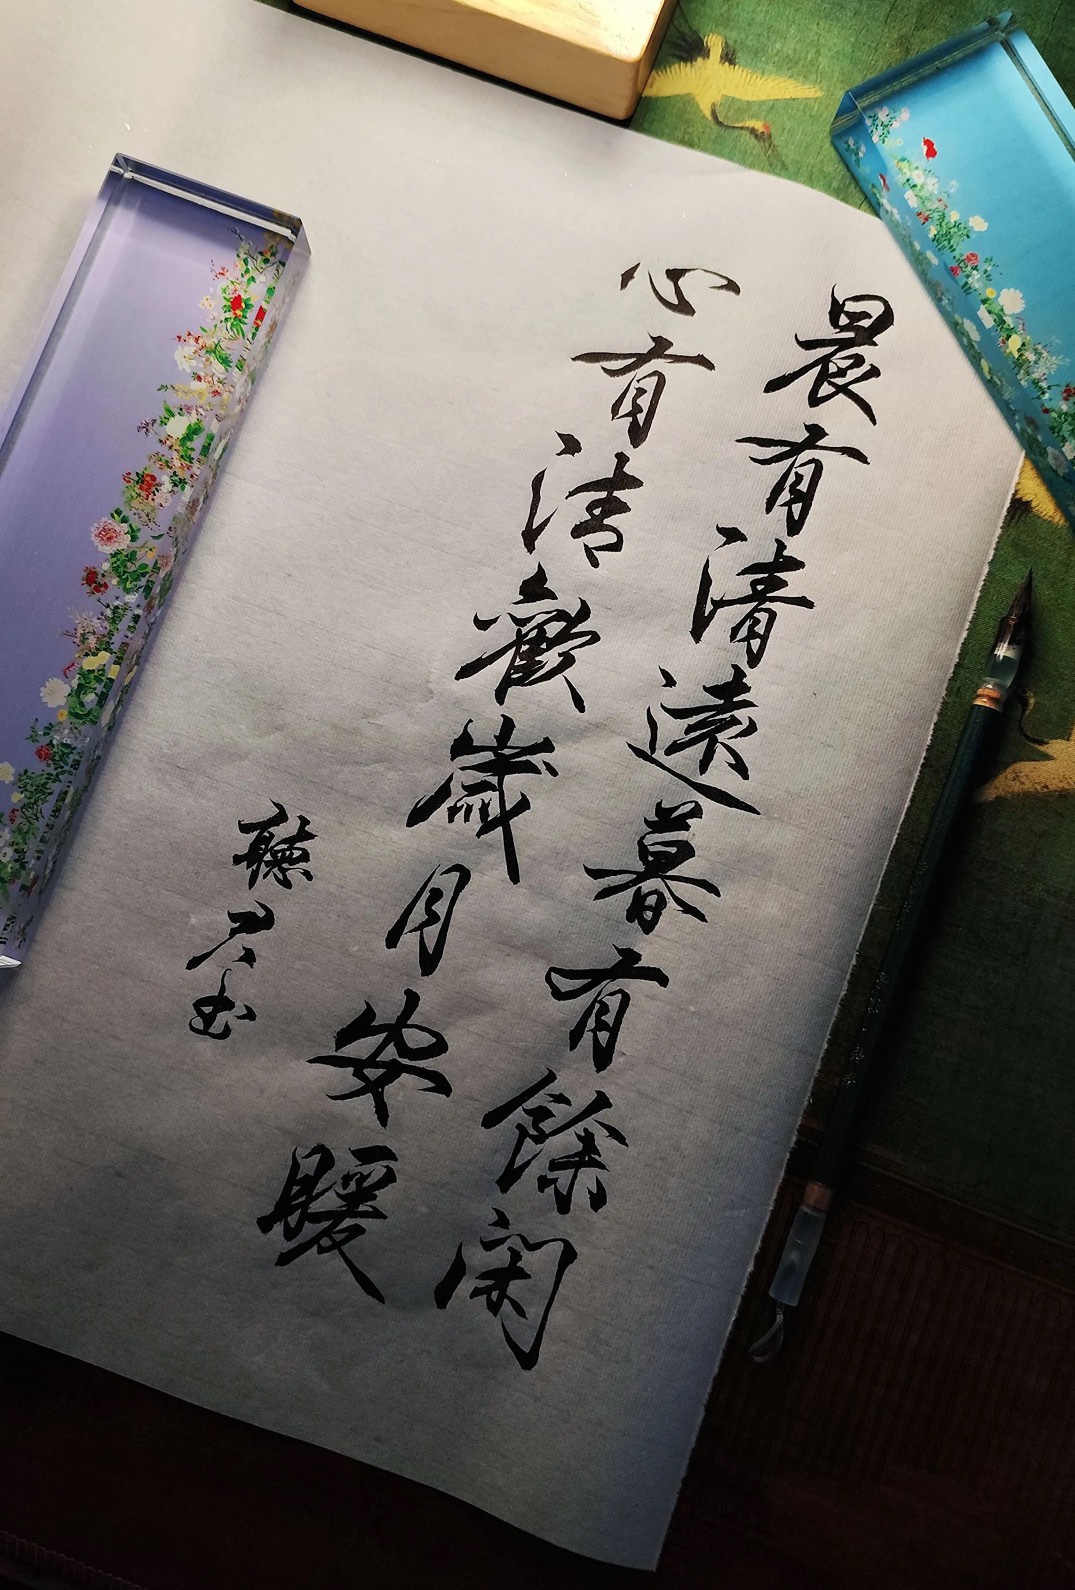 晨有清遠暮有餘閑
心有清歡歲月安暖
聽